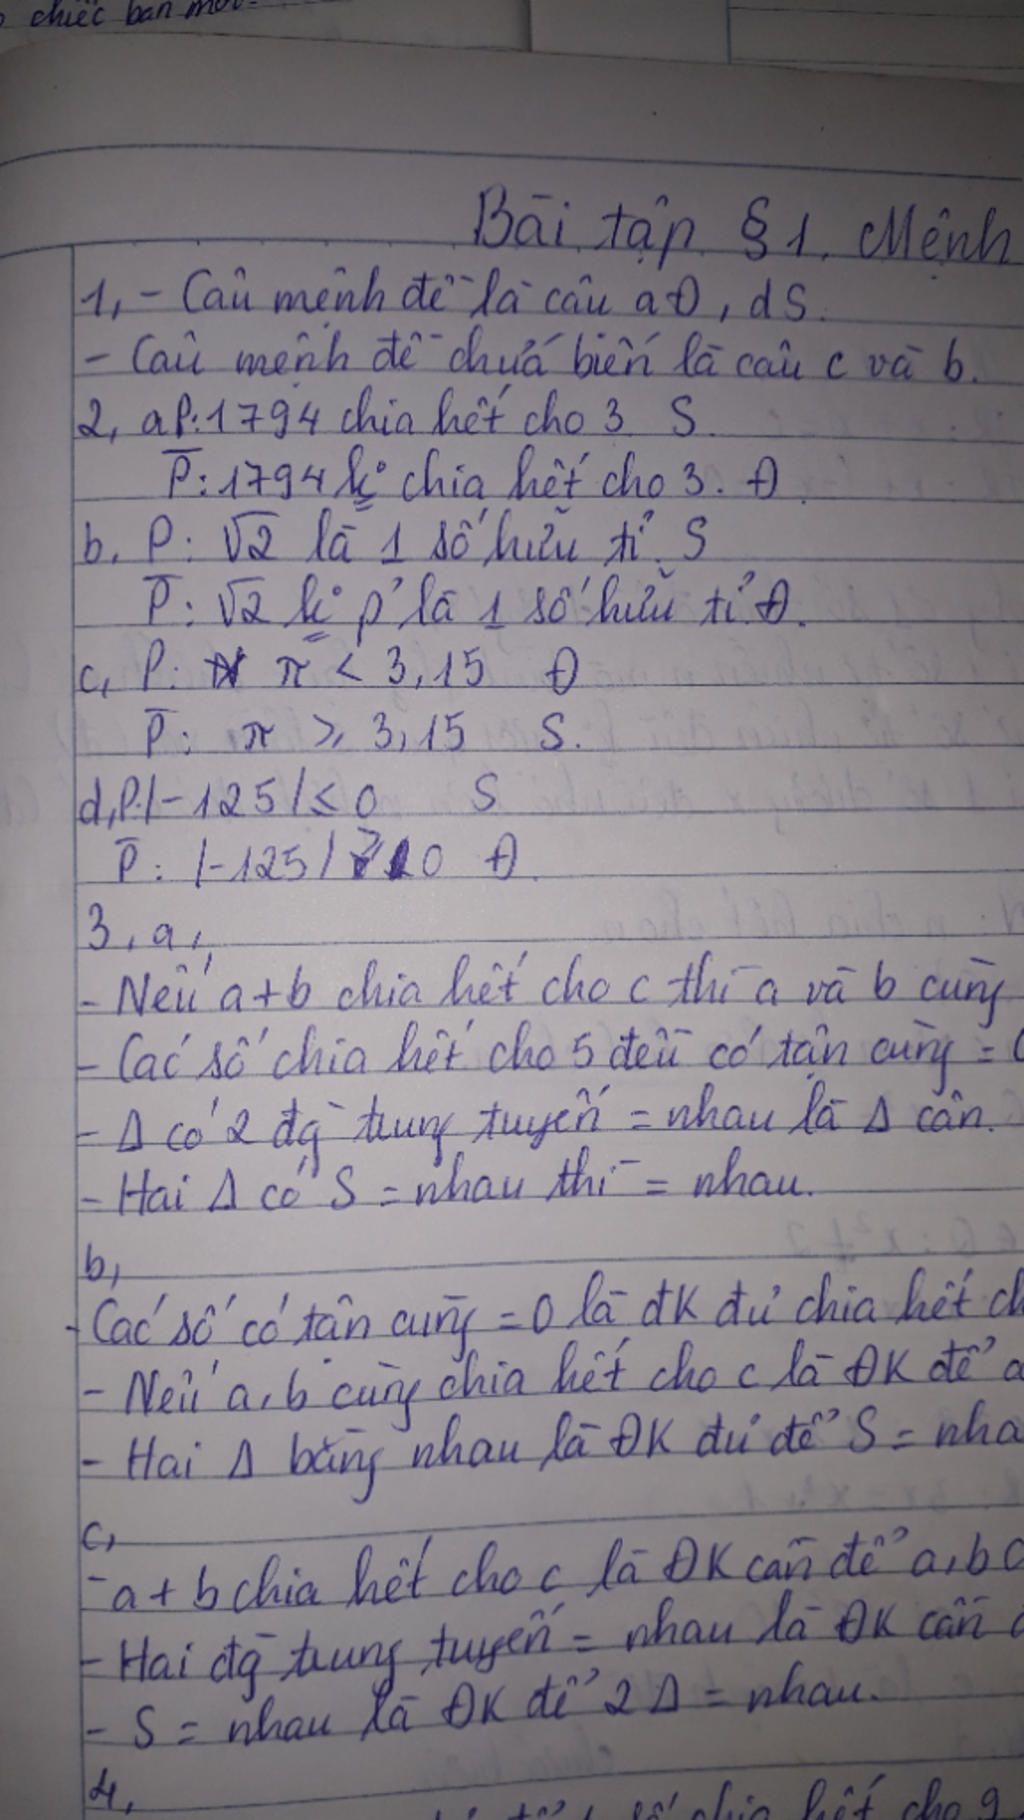 chiếc bàn mới.
Bài tập §1. Mệnh
1, - Câu mệnh đề là câu a Đ, d S.
- Câu mệnh đề chứa biến là câu c và b.
2, a P: 1794 chia hết cho 3 S.
P̅: 1794 k° chia hết cho 3. Đ
b. P: √2 là 1 số hữu tỉ. S
P̅: √2 k° p' là 1 số hữu tỉ Đ.
c, P: π < 3,15 Đ
P̅: π ≥ 3,15 S.
d, P: |-125| ≤ 0 S
P̅: |-125| > 0 Đ.
3, a,
- Nếu a+b chia hết cho c thì a và b cùng
- Các số chia hết cho 5 đều có tận cùng =
- Δ có 2 đg trung tuyến = nhau là Δ cân.
- Hai Δ có S = nhau thì = nhau.
b,
- Các số có tận cùng = 0 là đK đủ chia hết
- Nếu a, b cùng chia hết cho c là ĐK để a
- Hai Δ bằng nhau là ĐK đủ để S =
c,
- a + b chia hết cho c là ĐK cần để a, b
- Hai đg trung tuyến = nhau là ĐK cần
- S = nhau là ĐK để 2 Δ = nhau.
4,
số chia hết cho 9